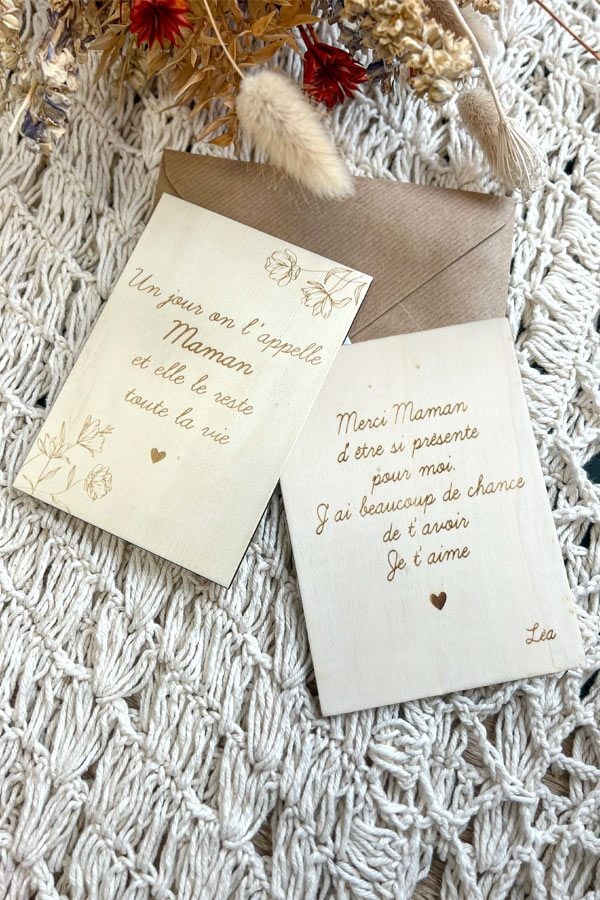 Un jour on l'appelle
Maman
et elle le reste
toute la vie
Merci Maman
d'etre si présente
pour moi.
J'ai beaucoup de chance
de t'avoir
Je t'aime
Léa